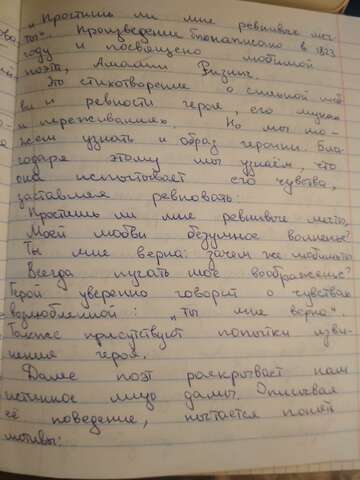 „Простишь ли мне ревнивые меч-
ты". Произведение было написано в 1823
году и посвящено любимой
поэта, Амалии Ризнич.
Это стихотворение о сильной люб-
ви и ревности героя, его муках
и переживаниях. Но мы мо-
жем узнать и образ героини. Бла-
годаря этому мы узнаём, что
она испытывает его чувства,
заставляя ревновать:
Простишь ли мне ревнивые мечты,
Моей любви безумное волненье?
Ты мне верна: зачем же любишь ты
Всегда пугать моё воображенье?
Герой уверенно говорит о чувствах
возлюбленной: „ты мне верна".
Также присутствуют попытки изви-
нения героя.
Далее поэт раскрывает нам
истинное лицо дамы. Описывая
её поведение, пытается понять
мотивы: